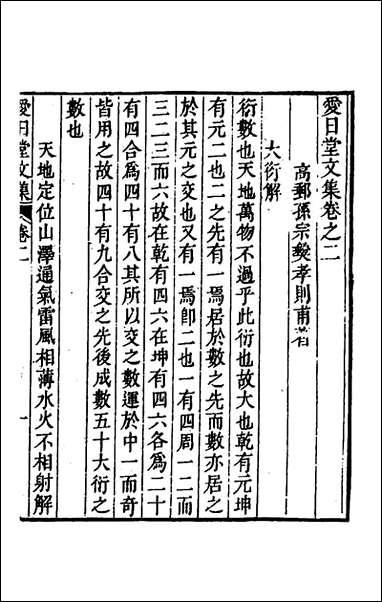 愛日堂文集卷之二
高郵孫宗彝孝則甫著
大衍解
衍數也天地萬物不過乎此衍也故大也乾有元坤
有元二也二之先有一焉居於數之先而數亦居之
於其元之交也又有一焉卽二也一有四周一二而
三二三而六故在乾有四六在坤有四六各爲二十
有四合爲四十有八其所以交之數運於中一而奇
皆用之故四十有九合交之先後成數五十大衍之
數也
天地定位山澤通氣雷風相薄水火不相射解
愛日堂文集
卷二
一